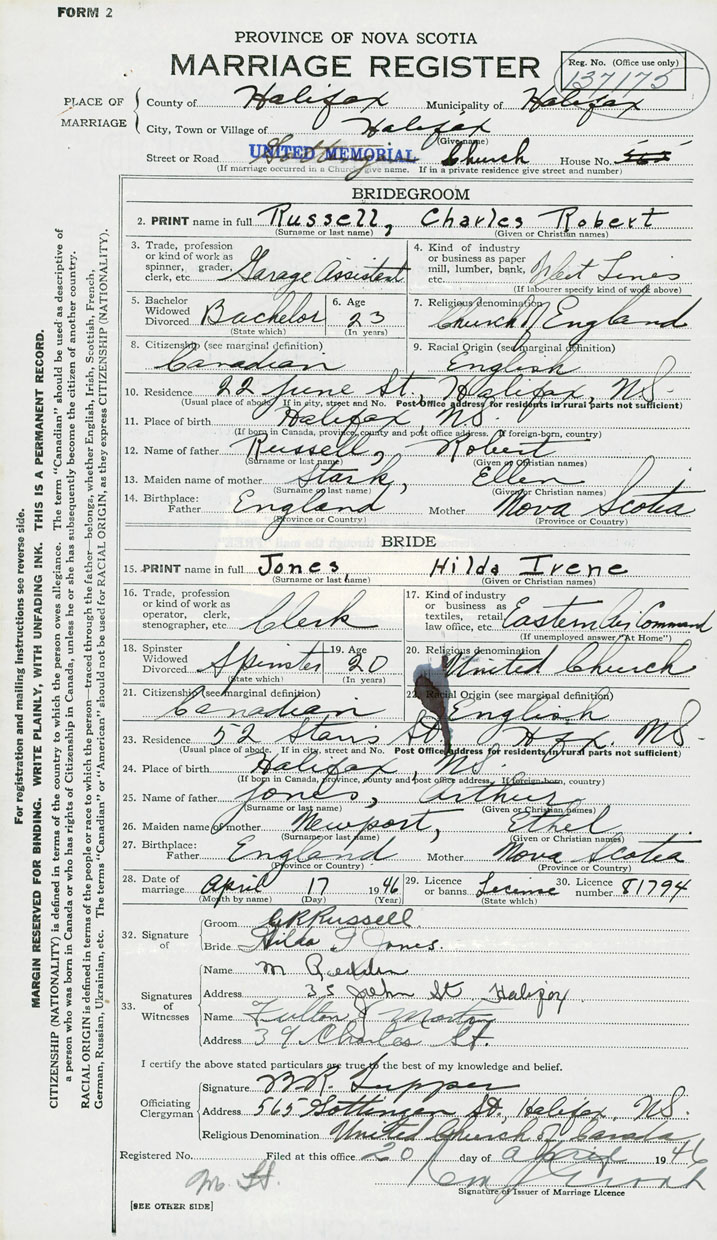 FORM 2
PROVINCE OF NOVA SCOTIA
MARRIAGE REGISTER
Reg. No. (Office use only)
137175
PLACE OF MARRIAGE
County of Halifax Municipality of Halifax
City, Town or Village of Halifax
(Give name)
Street or Road UNITED MEMORIAL Church House No. 565
(If marriage occurred in a Church give name. If in a private residence give street and number)
BRIDEGROOM
2. PRINT name in full Russell, Charles Robert
(Surname or last name) (Given or Christian names)
3. Trade, profession or kind of work as spinner, grader, clerk, etc. Garage Assistant
4. Kind of industry or business as paper mill, lumber, bank, etc.
(If labourer specify kind of work above)
5. Bachelor Widowed Divorced Bachelor
(State which)
6. Age 23
(In years)
7. Religious denomination Church of England
8. Citizenship (see marginal definition) Canadian
9. Racial Origin (see marginal definition) English
10. Residence 22 June St., Halifax, N.S.
(Usual place of abode. If in city, street and No. Post Office address for residents in rural parts not sufficient)
11. Place of birth Halifax, N.S.
(If born in Canada, province, county and post office address. If foreign-born, country)
12. Name of father Russell, Robert
(Surname or last name) (Given or Christian names)
13. Maiden name of mother Stark, Ellen
(Surname or last name) (Given or Christian names)
14. Birthplace: Father England Mother Nova Scotia
(Province or Country) (Province or Country)
BRIDE
15. PRINT name in full Jones, Hilda Irene
(Surname or last name) (Given or Christian names)
16. Trade, profession or kind of work as operator, clerk, stenographer, etc. Clerk
17. Kind of industry or business as textiles, retail law office, etc. Eastern Air Command
(If unemployed answer "At Home")
18. Spinster Widowed Divorced Spinster
(State which)
19. Age 20
(In years)
20. Religious denomination United Church
21. Citizenship (see marginal definition) Canadian
22. Racial Origin (see marginal definition) English
23. Residence 52 St. Hfx. N.S.
(Usual place of abode. If in city, street and No. Post Office address for residents in rural parts not sufficient)
24. Place of birth Halifax, N.S.
(If born in Canada, province, county and post office address. If foreign-born, country)
25. Name of father Jones, Arthur
(Surname or last name) (Given or Christian names)
26. Maiden name of mother Newport, Ethel
(Surname or last name) (Given or Christian names)
27. Birthplace: Father England Mother Nova Scotia
(Province or Country) (Province or Country)
28. Date of marriage April 17 1946
(Month by name) (Day) (Year)
29. Licence or banns License
(State which)
30. Licence number 81794
32. Signature of
Groom C R Russell.
Bride Hilda I Jones.
33. Signatures of Witnesses
Name M Redden
Address 35 John St Halifax
Name Fulton J
Address 39 Charles St.
I certify the above stated particulars are true to the best of my knowledge and belief.
Officiating Clergyman
Signature Tupper
Address 565 Gottingen St., Halifax, N.S.
Religious Denomination United Church of Canada
Registered No. Filed at this office 20 day of April 1946
Signature of Issuer of Marriage Licence
[SEE OTHER SIDE]
For registration and mailing instructions see reverse side.
MARGIN RESERVED FOR BINDING. WRITE PLAINLY, WITH UNFADING INK. THIS IS A PERMANENT RECORD.
CITIZENSHIP (NATIONALITY) is defined in terms of the country to which the person owes allegiance. The term "Canadian" should be used as descriptive of
a person who was born in Canada or who has rights of Citizenship in Canada, unless he or she has subsequently become the citizen of another country.
RACIAL ORIGIN is defined in terms of the people or race to which the person—traced through the father—belongs, whether English, Irish, Scottish, French,
German, Russian, Ukrainian, etc. The terms "Canadian" or "American" should not be used for RACIAL ORIGIN, as they express CITIZENSHIP (NATIONALITY).